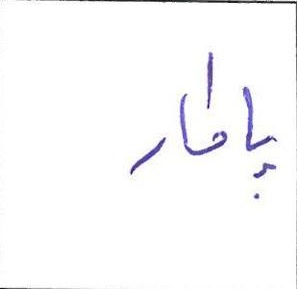 پاطار